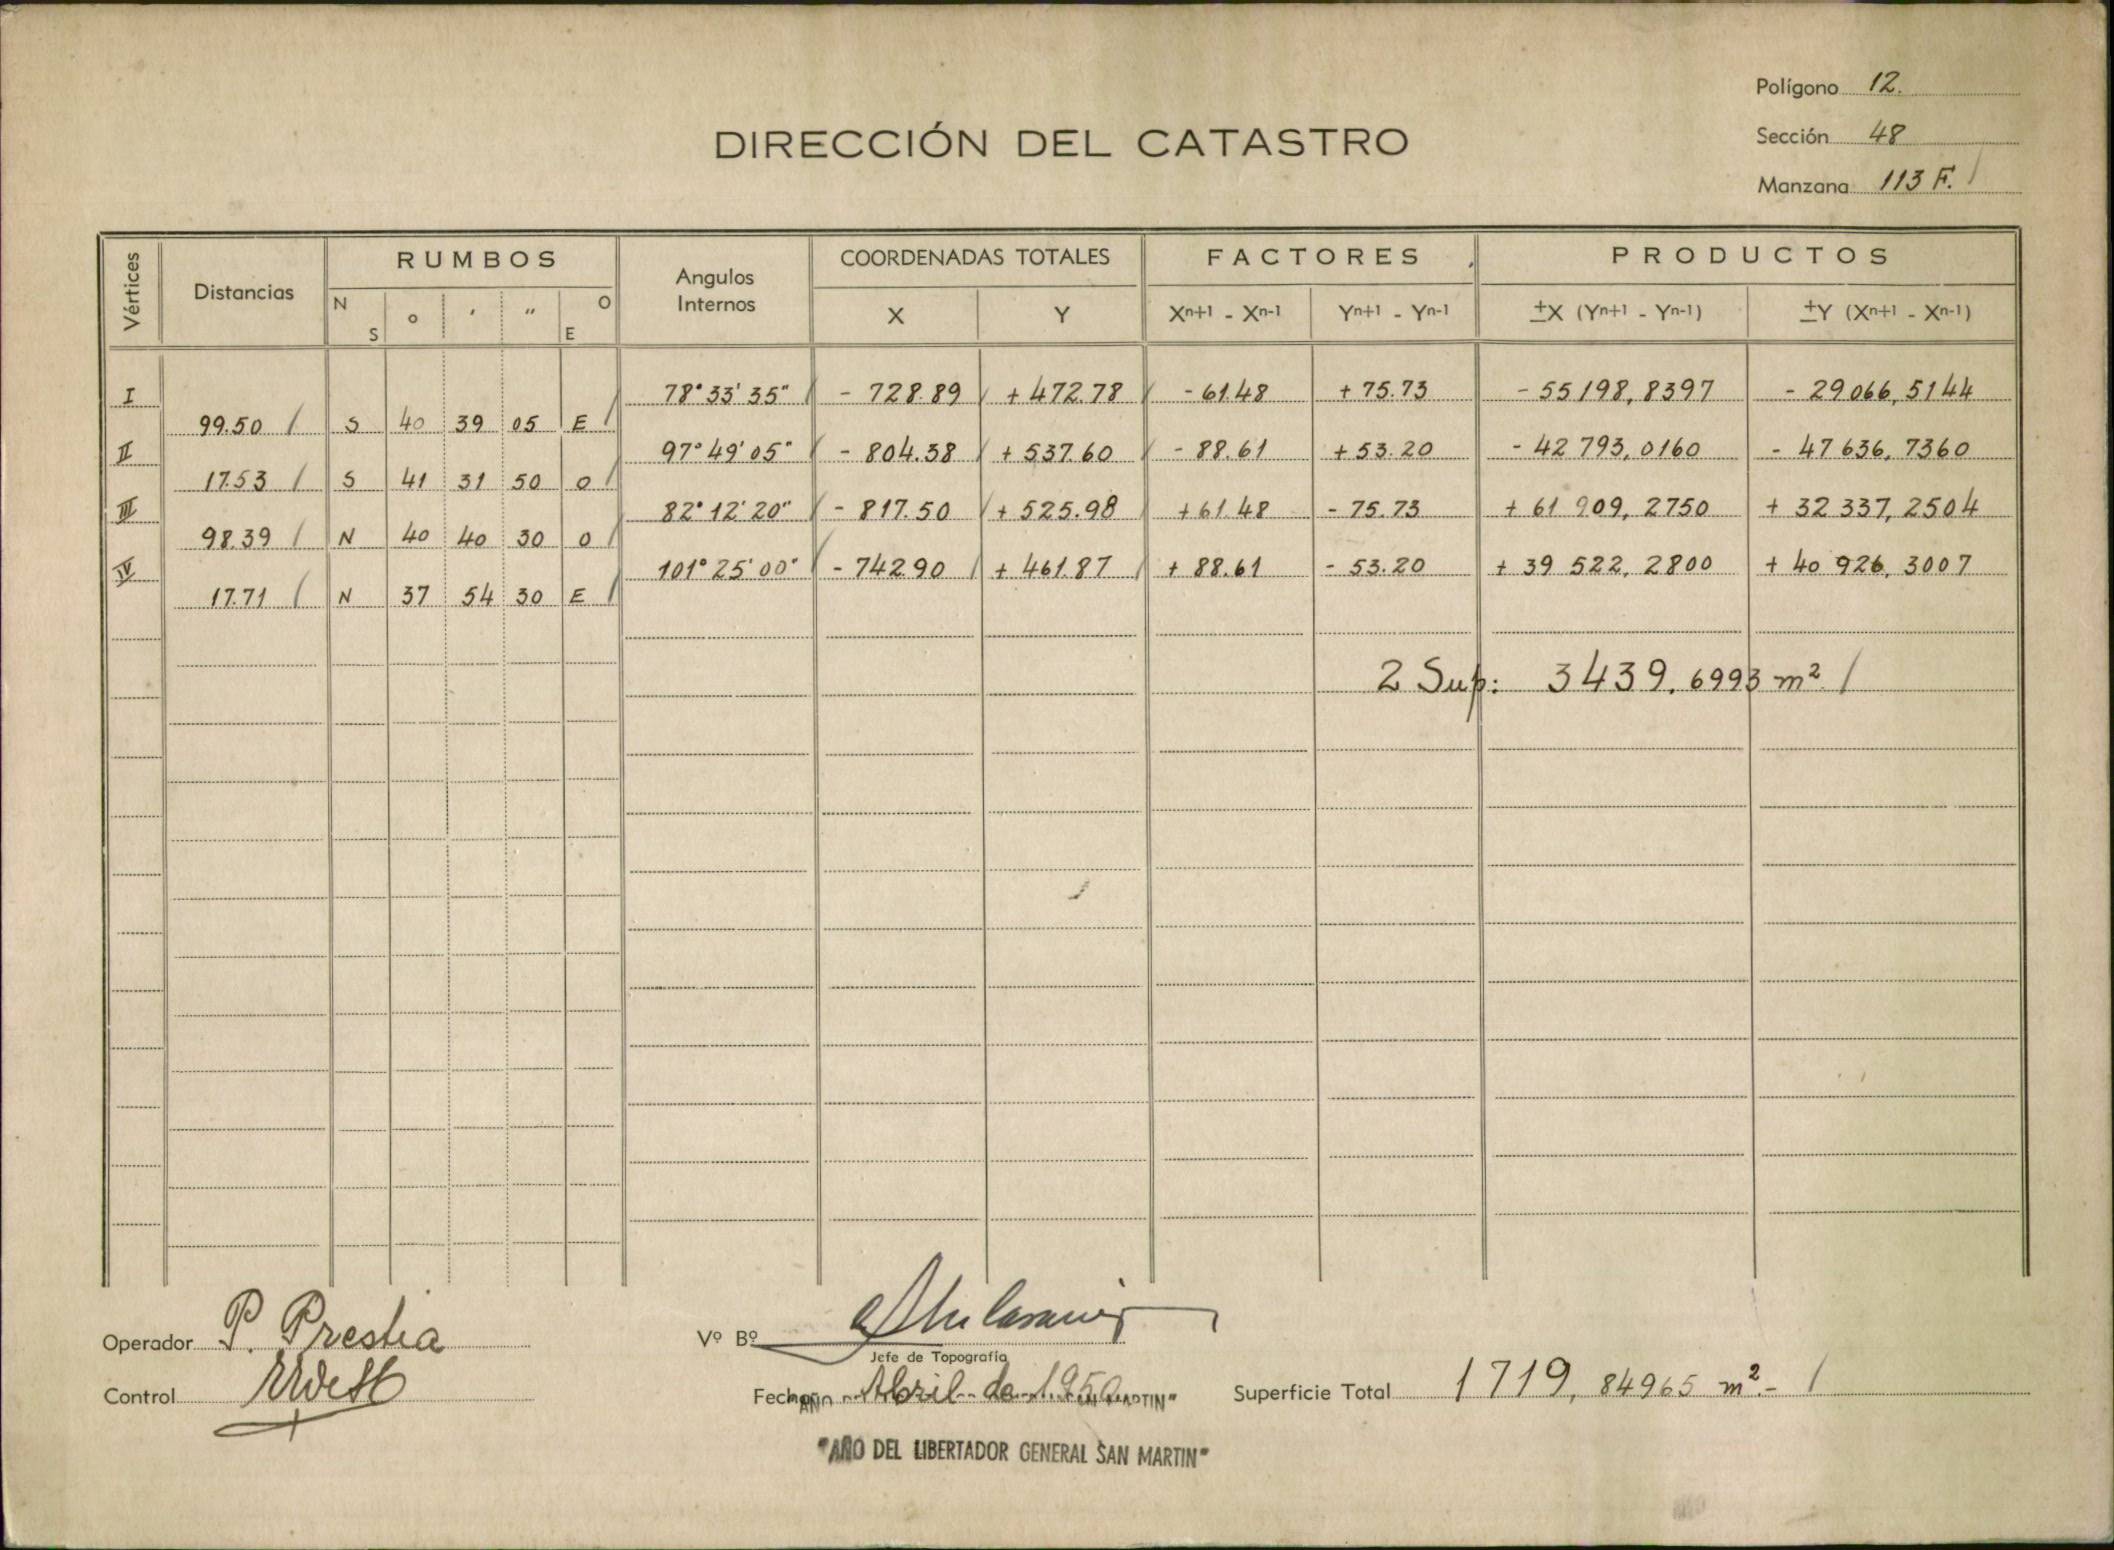 Polígono 12.
DIRECCIÓN DEL CATASTRO
Sección 48
Manzana 113 F.
Vértices Distancias RUMBOS Angulos Internos COORDENADAS TOTALES FACTORES PRODUCTOS
N S o ' " O E X Y Xn+1 - Xn-1 Yn+1 - Yn-1 ±X (Yn+1 - Yn-1) ±Y (Xn+1 - Xn-1)
I 78° 33' 35" - 728.89 + 472.78 - 61.48 + 75.73 - 55198,8397 - 29066,5144
99.50 S 40 39 05 E
II 97° 49' 05" - 804.38 + 537.60 - 88.61 + 53.20 - 42 793,0160 - 47 636,7360
17.53 S 41 31 50 O
III 82° 12' 20" - 817.50 + 525.98 + 61.48 - 75.73 + 61 909,2750 + 32 337,2504
98.39 N 40 40 30 O
IV 101° 25' 00" - 742.90 + 461.87 + 88.61 - 53.20 + 39 522,2800 + 40 926,3007
17.71 N 37 54 30 E
2 Sup: 3439.6993 m²
Operador P. Prestia
Vº Bº
Jefe de Topografía
Control
Fecha Abril de 1950
Superficie Total 1719,84965 m².-
"AÑO DEL LIBERTADOR GENERAL SAN MARTIN"